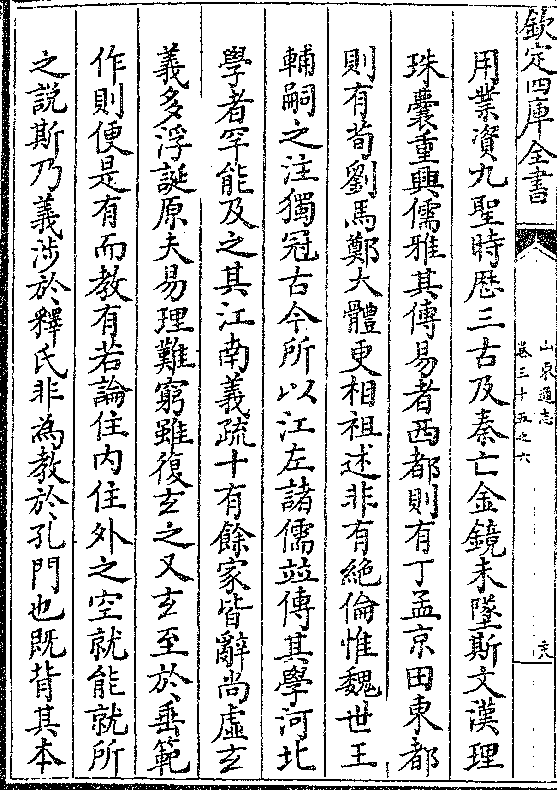 欽定四庫全書
山東通志
卷三十五之六
用業資九聖時歴三古及秦亡金鏡未墜斯文漢理
珠囊重興儒雅其傳易者西都則有丁孟京田東都
則有荀劉馬鄭大體更相祖述非有絶倫惟魏世王
輔嗣之注獨冠古今所以江左諸儒竝傳其學河北
學者罕能及之其江南義疏十有餘家皆辭尚虛玄
義多浮誕原夫易理難窮雖復玄之又玄至於垂範
作則便是有而教有若論住内住外之空就能就所
之說斯乃義涉於釋氏非為教於孔門也既背其本